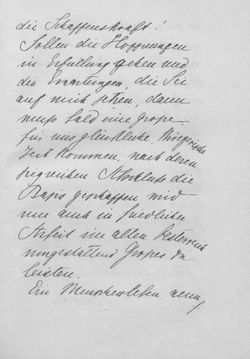 die Schaffenskraft!
Sollen die Hoffnungen
in Erfüllung gehen und
die Erwartungen, die Sie
auf mich setzen, dann
muss bald eine große
für uns glückliche
Zeit kommen, nach deren
Abschluss die
Basis geschaffen wird
um auch in friedlicher
Arbeit im alten Österreich
Großes zu
leisten.
Ein Menschenleben